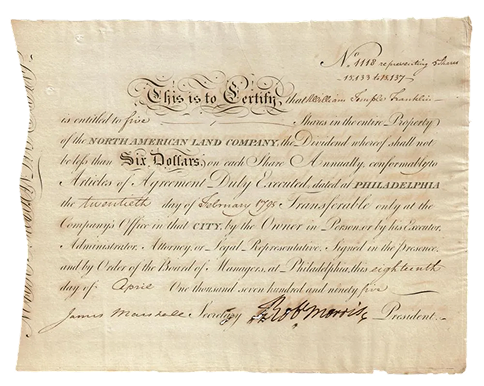 No. 1118 representing 5 shares
13,133 to 13,137.
This is to Certify, that William Temple Franklin
is entitled to five Shares in the entire Property
of the NORTH AMERICAN LAND COMPANY, the Dividend whereof shall not
be less than Six Dollars, on each Share Annually, conformably to
Articles of Agreement Duly Executed, dated at PHILADELPHIA
the twentieth day of February 1795 Transferable only at the
Company's Office in that CITY, by the Owner in Person, or by his Executor,
Administrator, Attorney, or Legal Representative, Signed in the Presence,
and by Order of the Board of Managers, at Philadelphia, this eighteenth
day of April One thousand seven hundred and ninety five
James Marshall Secretary Robt Morris President.